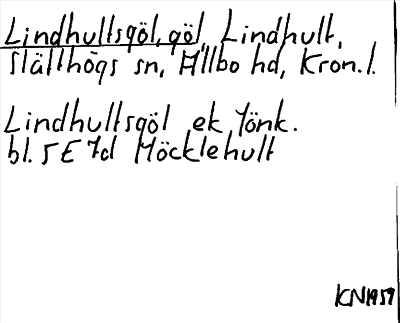 Lindhultsgöl, göl, Lindhult,
Slätthögs sn, Allbo hd, Kron. l.
Lindhultsgöl ek Jönk.
bl. 5 E 7d Möcklehult
KN 1959